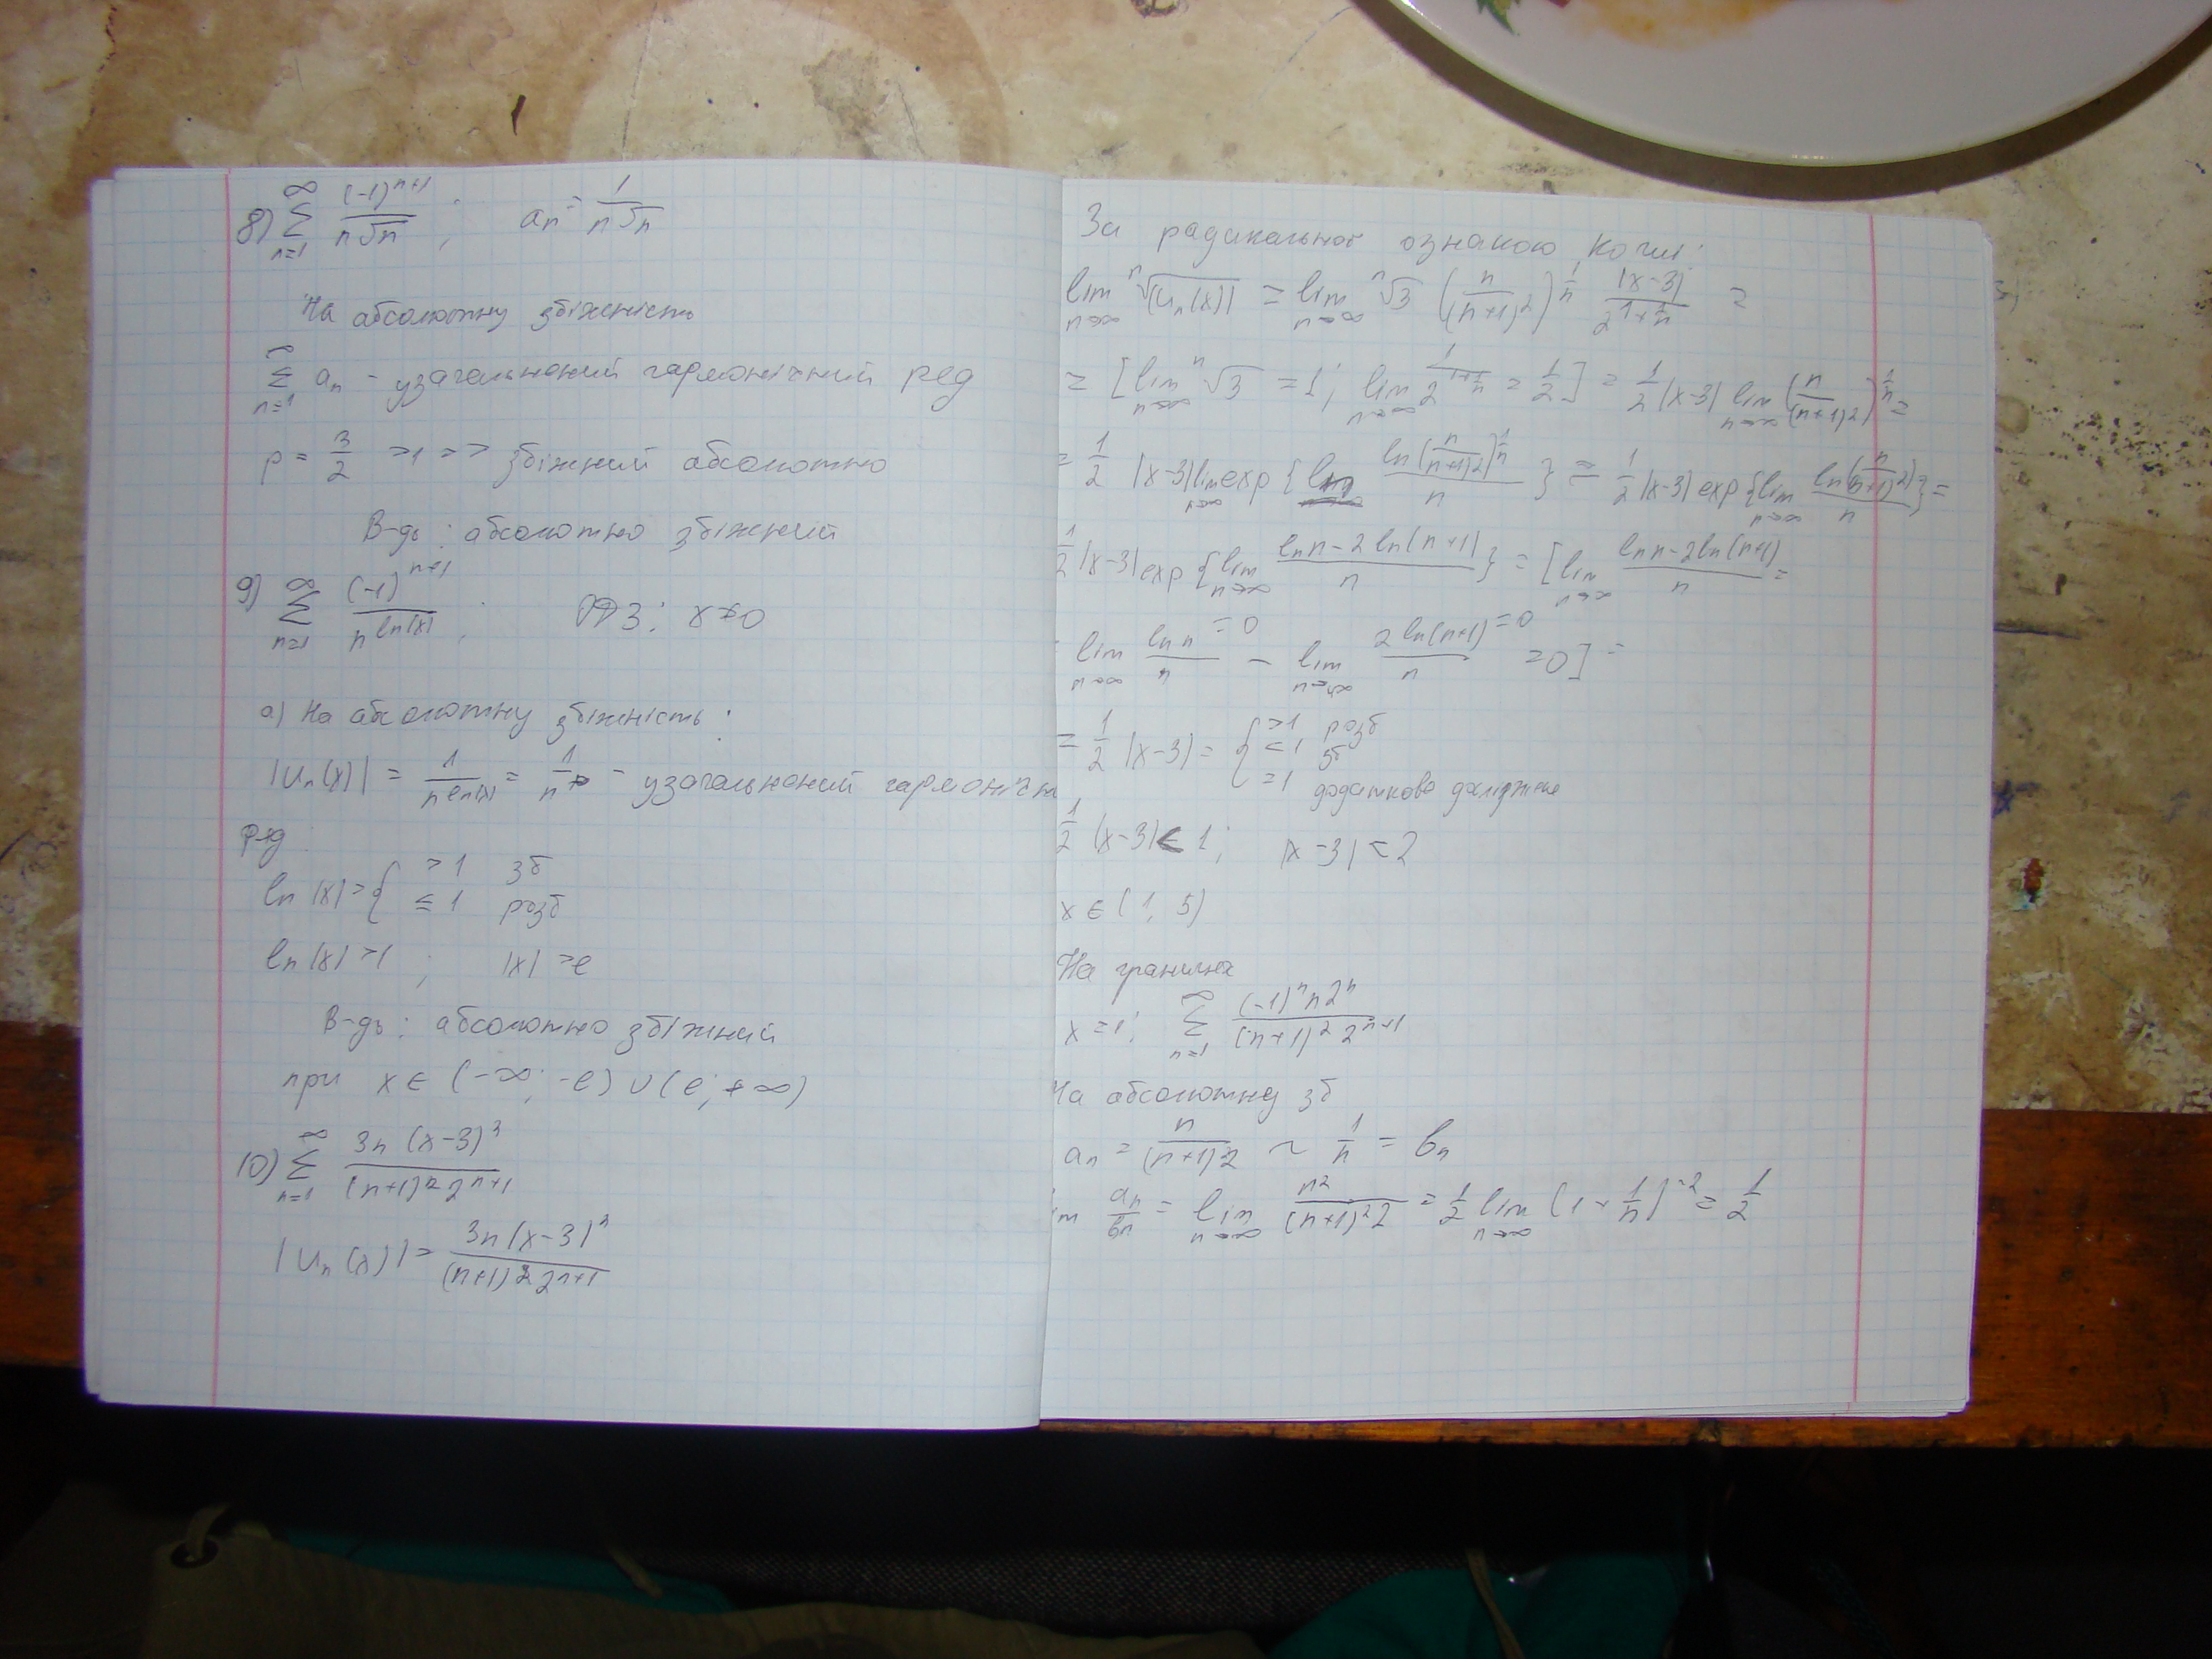 8) ∞∑n=1 (-1)^(n+1) / (n√n) ; aₙ = 1 / (n√n)
На абсолютну збіжність
∞∑n=1 aₙ - узагальнений гармонічний ряд
p = 3/2 >1 => збіжний абсолютно
В-дь: абсолютно збіжний
9) ∞∑n=1 (-1)^(n+1) / n^(ln|x|) ; ОДЗ: x≠0
а) На абсолютну збіжність:
|uₙ(x)| = 1 / n^(ln|x|) = 1 / n^p - узагальнений гармонічн
ряд
ln|x| = { >1 зб
≤1 розб
ln|x| >1 ; |x| >e
В-дь: абсолютно збіжний
при x ∈ (-∞; -e) ∪ (e; +∞)
10) ∞∑n=1 3n (x-3)ⁿ / ((n+1)² 2^(n+1))
|uₙ(x)| = 3n |x-3|ⁿ / ((n+1)² 2^(n+1))
За радикальною ознакою Коші:
lim n→∞ ⁿ√|uₙ(x)| = lim n→∞ ⁿ√3 (n / (n+1)²)^(1/n) |x-3| / 2^(1+1/n) =
= [lim n→∞ ⁿ√3 = 1; lim n→∞ 1 / 2^(1+1/n) = 1/2] = 1/2 |x-3| lim n→∞ (n / (n+1)²)^(1/n) =
= 1/2 |x-3| lim n→∞ exp { ln(n / (n+1)²)^(1/n) / n } = 1/2 |x-3| exp {lim n→∞ ln(n / (n+1)²) / n} =
1/2 |x-3| exp {lim n→∞ (ln n - 2 ln(n+1)) / n} = [lim n→∞ (ln n - 2 ln(n+1)) / n =
= lim n→∞ ln n / n = 0 - lim n→∞ 2 ln(n+1) / n = 0 = 0] =
= 1/2 |x-3| = { >1 розб
<1 зб
=1 додаткове дослідження
1/2 |x-3| < 1; |x-3| < 2
x ∈ (1, 5)
На границях
x = 1; ∞∑n=1 (-1)ⁿ n 2ⁿ / ((n+1)² 2^(n+1))
На абсолютну зб
aₙ = n / ((n+1)² 2) ~ 1/n = bₙ
im aₙ/bₙ = lim n→∞ n² / ((n+1)² 2) = 1/2 lim n→∞ (1 + 1/n)^(-2) = 1/2